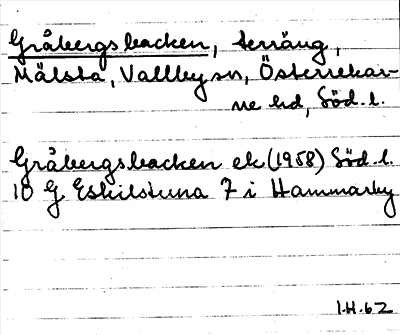 Gråbergsbacken, terräng,
Mälsta, Vallby sn, Österrekar-
ne hd, Söd. l.
Gråbergsbacken ek (1958) Söd. l.
10 G Eskilstuna 7 i Hammarby
I.H.62